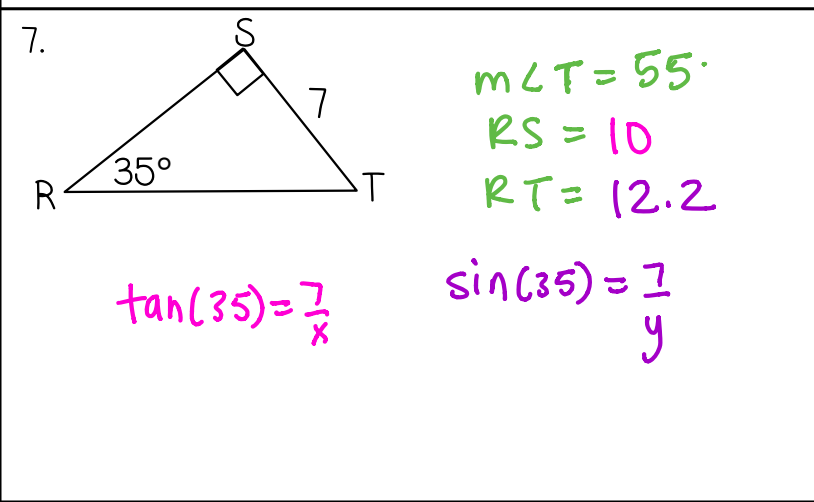 7.
S
7
35°
R
T
m∠T = 55°
RS = 10
RT = 12.2
tan(35) = 7/x
sin(35) = 7/y